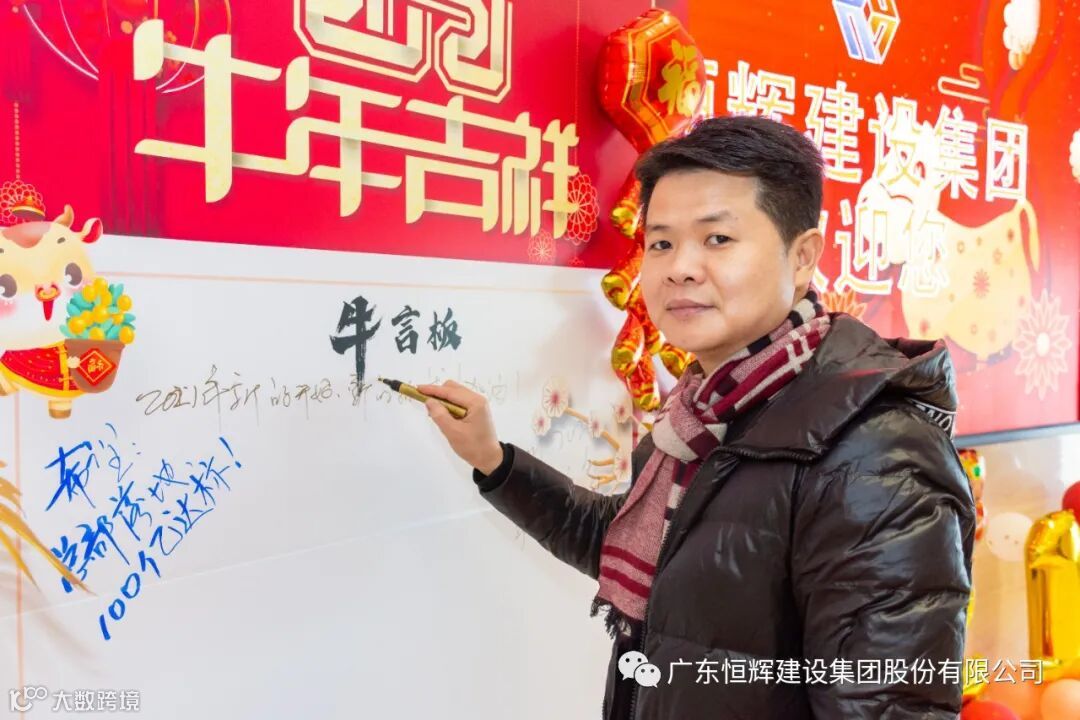 牛年吉祥
福
恒辉建设集团
欢迎您
牛言板
2021年新的开始、新的
牛:
总部落地
100亿达标!
广东恒辉建设集团股份有限公司
大数跨境